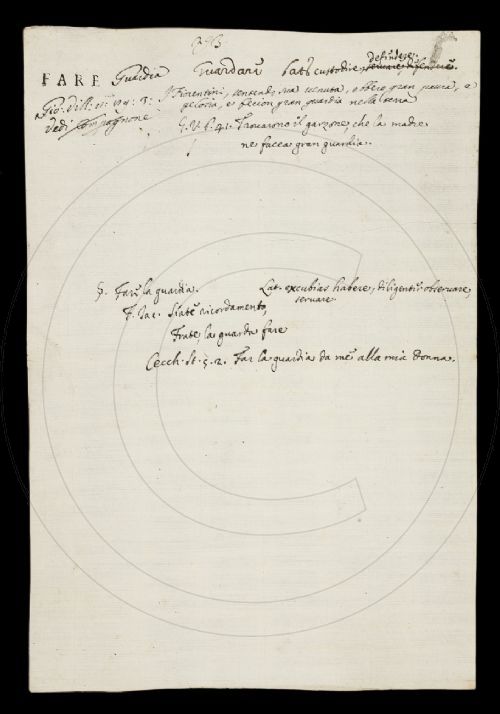 defendere.
FARE Guardia Guardare Lat. custodire, servare, defendere.
Gio. Vill. 11. 134. 3. I Fiorentini, sentendo sua venuta, ebbero gran paura, e
gelosia, e fecion gran guardia nella terra
Vedi Compagnone
G. V. f. 41. Trovarono il garzone, che la madre
ne facea gran guardia.
§. Fare la guardia. Lat. excubias habere, diligenter observare,
servare.
F. Iac. Siate ricordamento,
Frate, la guarda fare
Cecch. St. 5. 2. Far la guardia da me alla mia donna.